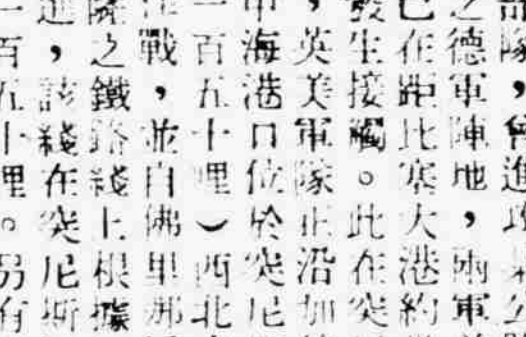 部隊，曾進攻
之德軍陣地，兩軍
已在距比塞大港約
發生接觸。此在突
，英美軍隊正沿加
中海港口位於突尼
一百五十哩）西北
戰，並自佛里那
隊之鐵路綫上根據
進，該綫在突尼斯
一百五十哩。另有